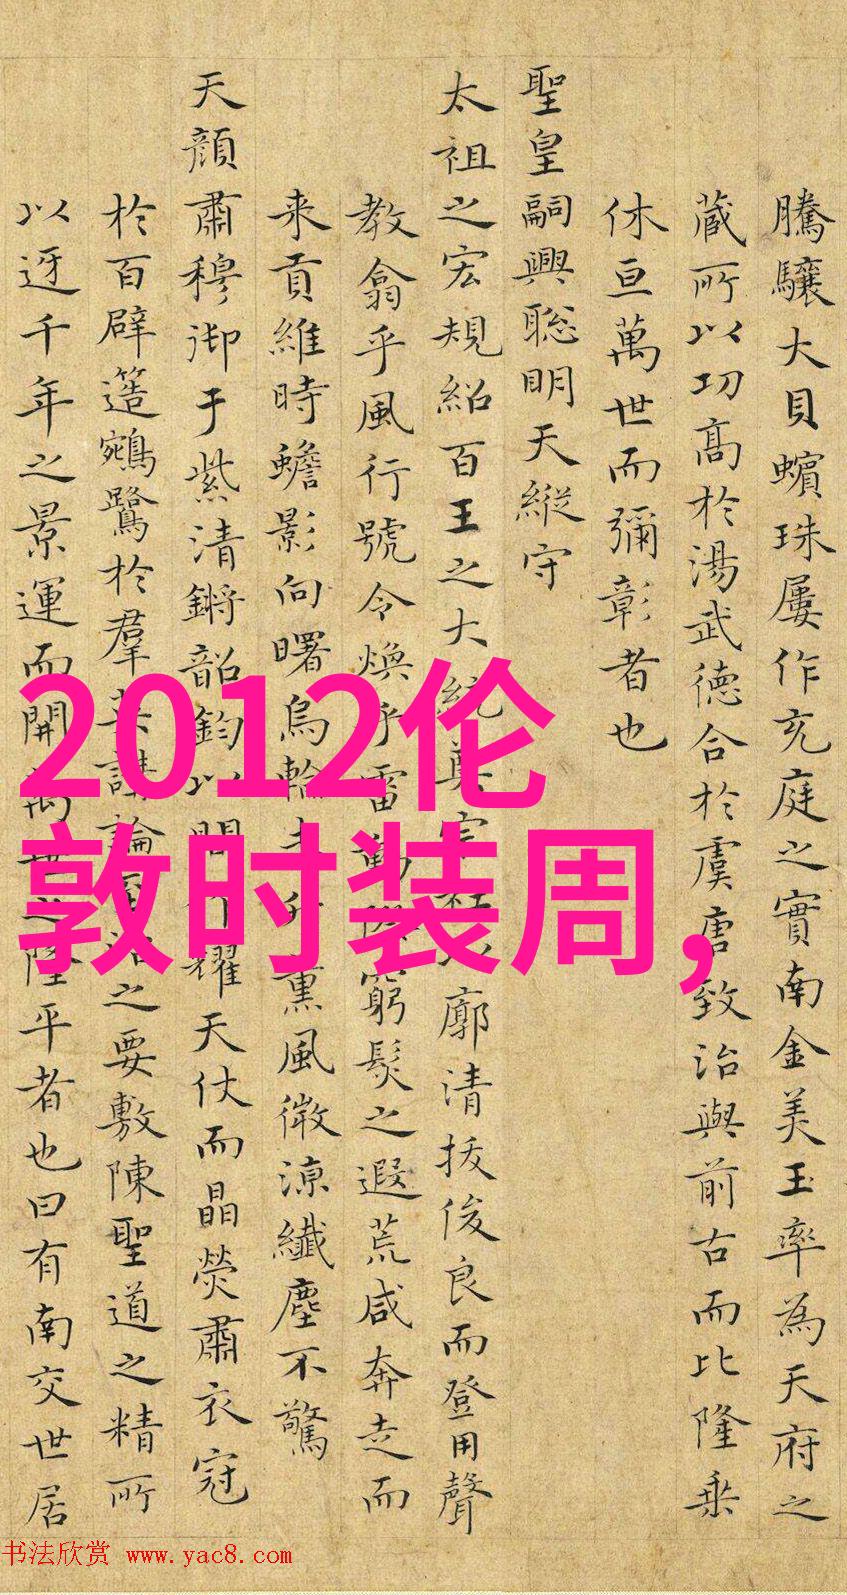 騰驤大貝蠙珠屢作充庭之實南金美玉率為天府之
蔵所以功髙於湯武德合於虞唐致治與前古而比隆乗
休亘萬世而彌彰者也
聖皇嗣興聡明天縦守
太祖之宏規紹百王之大統奠宗社以廓清拔俊良而登用聲
教翕乎風行號令煥乎雷動際窮髮之遐荒咸奔走而
来貢維時蟾影向曙烏輪未升熏風微涼纖塵不驚
天顔肅穆御于紫清鏘韶鈞以間作耀天仗而晶熒肅衣冠
於百辟簉鵷鷺於羣英講論至治之要敷陳聖道之精所
以迓千年之景運而開萬世之隆平者也曰有南交世居
2012伦
敦时装周,
书法欣赏 www.yac8.com